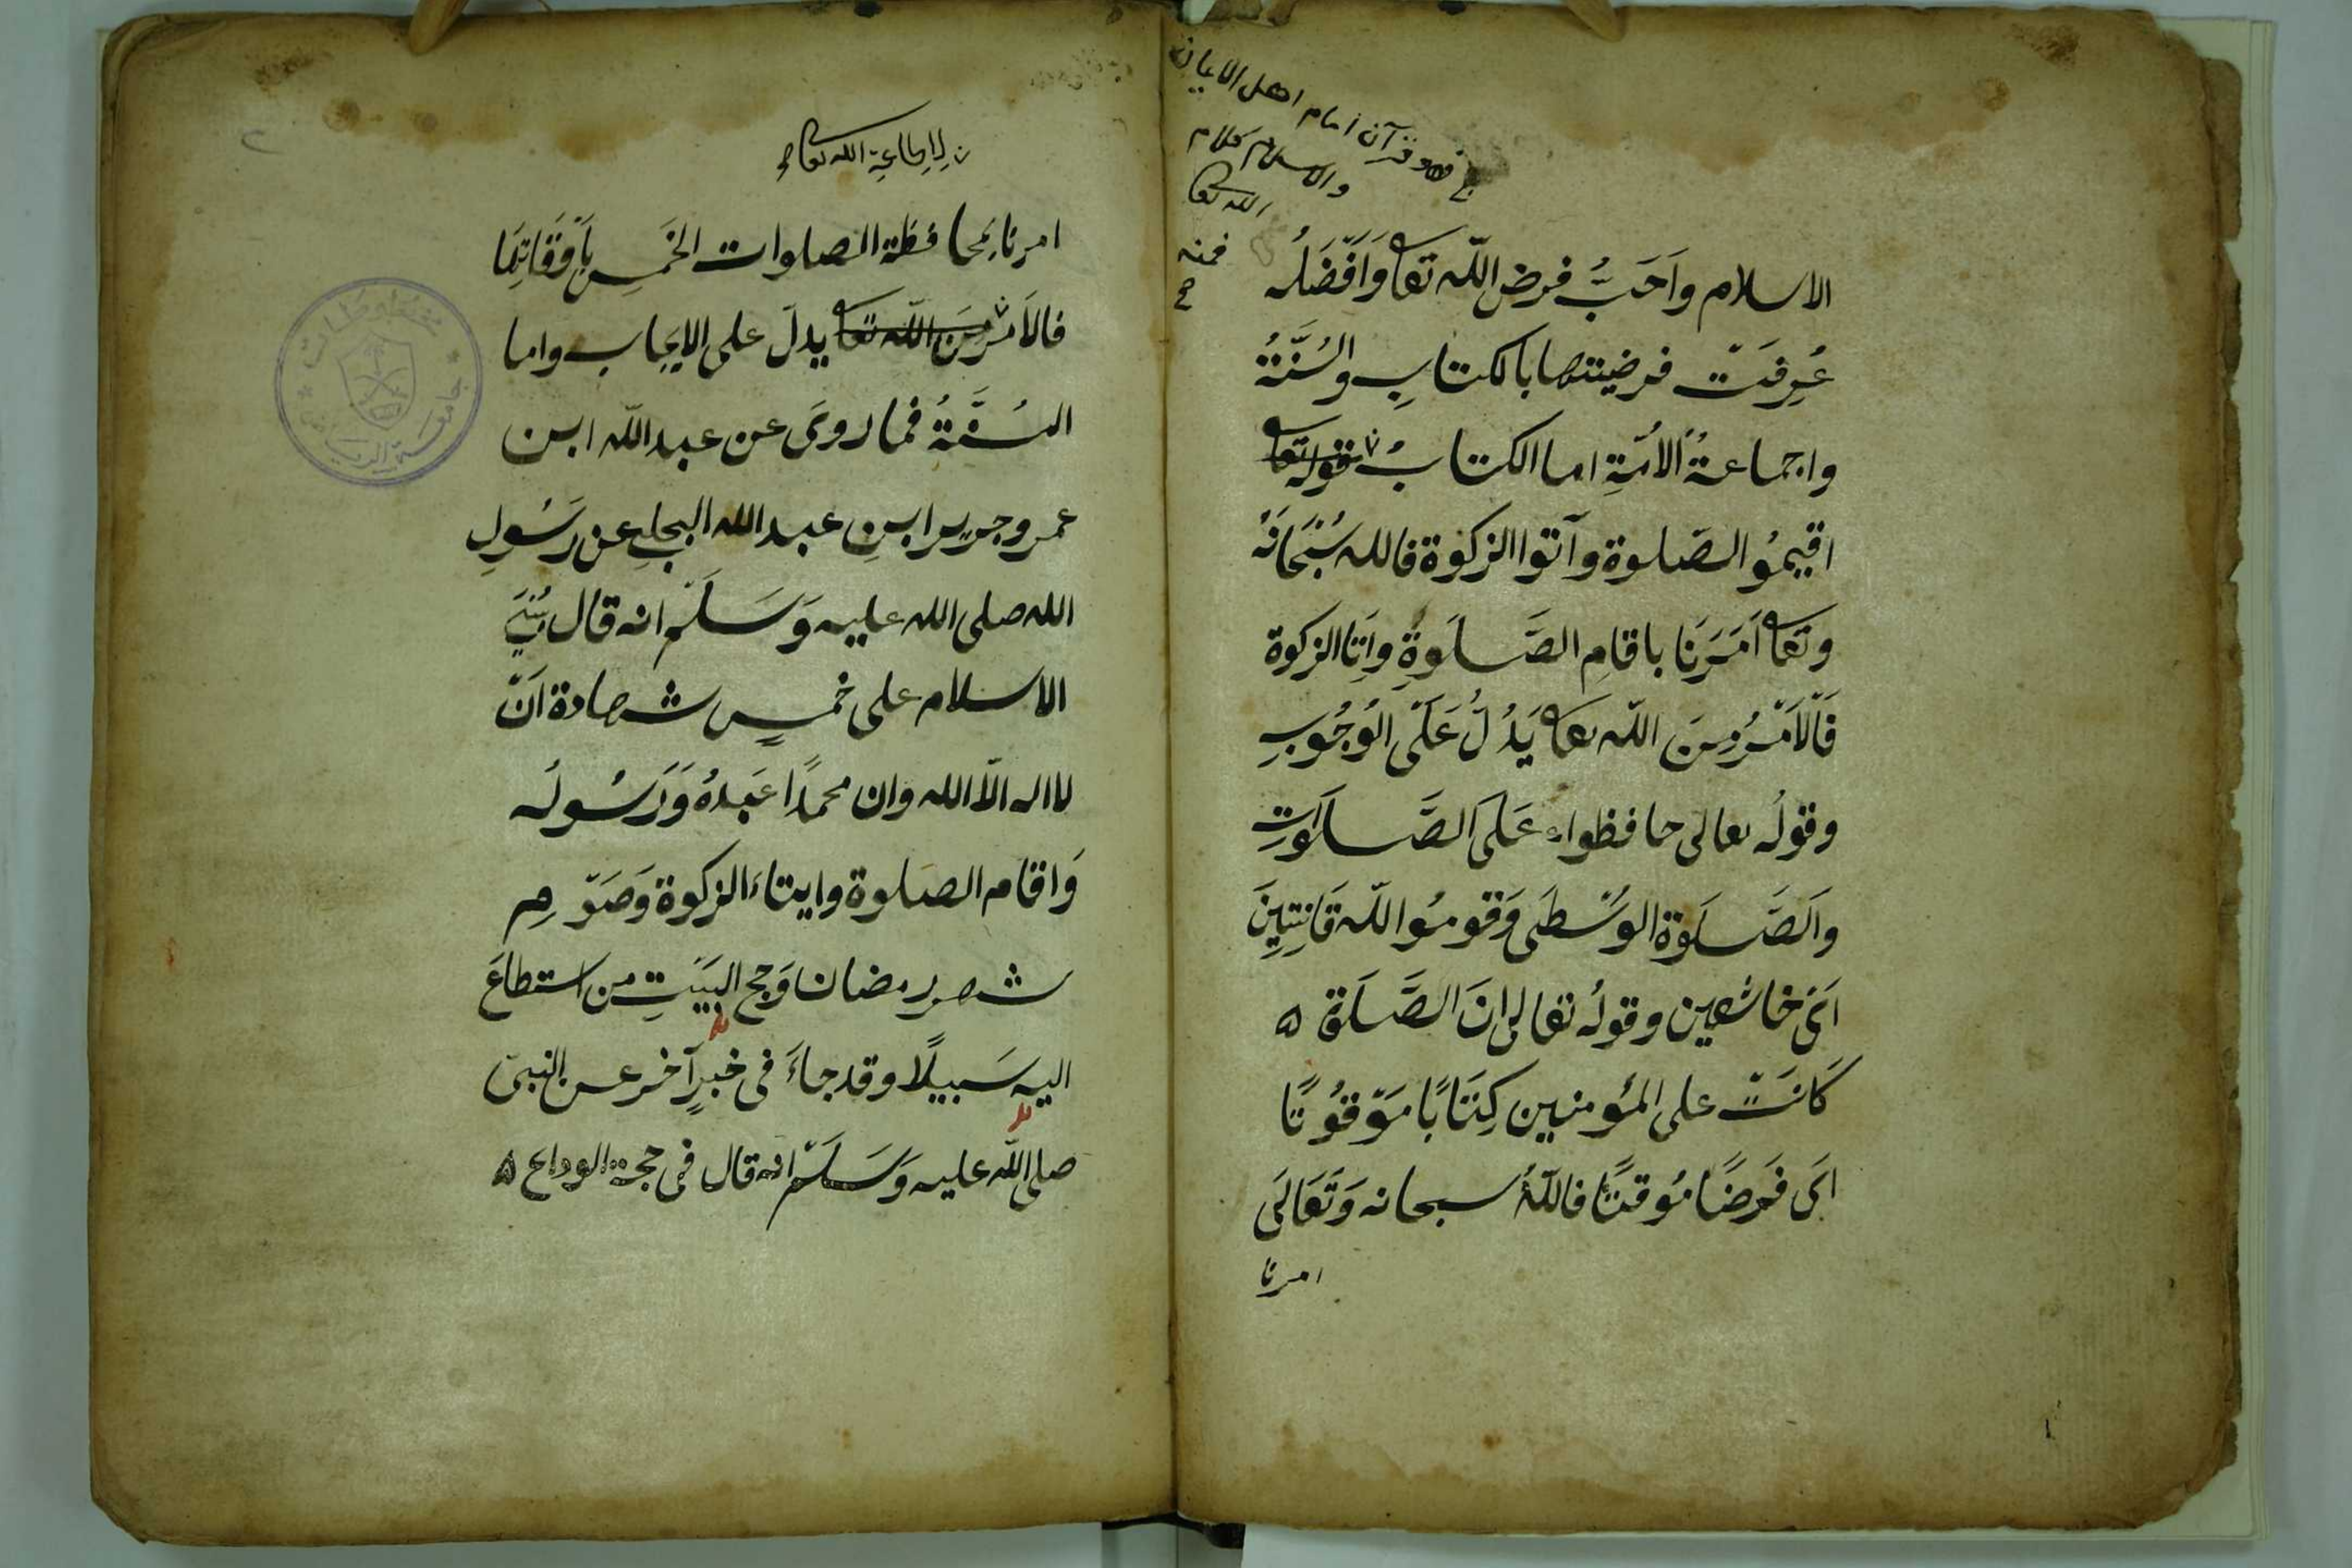 فهو قرآن امام اهل الايمان
والاسلام كلام
الله تعا
فمنه
صح
الاسلام واَحَبُّ فرض اللّه تعا وَاَفْضَلُه
عُرِفَتْ فرضيتها بالكتابِ والسُنَّةُ
واجماعةُ الأمّةِ اما الكتابُ قوله تعا
اقيمُو الصّلوة وآتوا الزكوة فالله سُبْحَانَهُ
وتعا اَمَرَنَا باقامِ الصَّلَوةِ واَتِا الزكوة
فَالْاَمْرُ مِنَ اللّه تعا يَدُلُّ عَلَى الْوُجُوبِ
وقولُه تعالى حافظواء عَلَى الصَّلَوَاتِ
والَصَّلَوة الوُسْطَى وَقومُوا للّه قَانِتِينَ
اَىْ خاشعين وقولُه تعالى انَ الصَّلَوة ه
كَانَتْ على المؤمنين كِتَابًا مَوْقوُتًا
اىَ فَرضًا مُوقتًا فاللّهُ سبحانه وَتَعَالَى
امرنا
لاطاعة الله تعا
امرنا بِمحافظة الصلوات الخَمسِ بِاَوْقَاتِهَا
فالاَمْرُ مِنَ اللّه تعا يدلّ على الايجاب واما
السُنَّةُ فما روىَ عن عبد اللّه ابن
عمر وجرير ابنِ عبد الله البجلىِ عن رَسُولِ
الله صلى الله عليه وَسَلَّم انه قال بُنِىَ
الاسلام على خمسٍ شهادة اَنّ
لا اله الّا الله وان محمدًا عَبدهُ وَرَسُولُه
وَاقام الصلوة وايتاءَ الزكوة وَصَوْمِ
شهر رمضان وَحج البَيْتِ من استطاعَ
اليه سَبيلًا وقد جاءَ فى خبرٍ آخر عن النبىّ
صلى اللّه عليه وَسَلَّم انه قال فى حجة الوداع ه